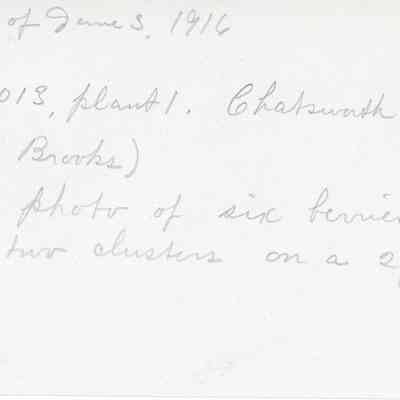 of June 3, 1916
013, plant 1. Chatsworth
Brooks)
photo of six berries
two clusters on a 2